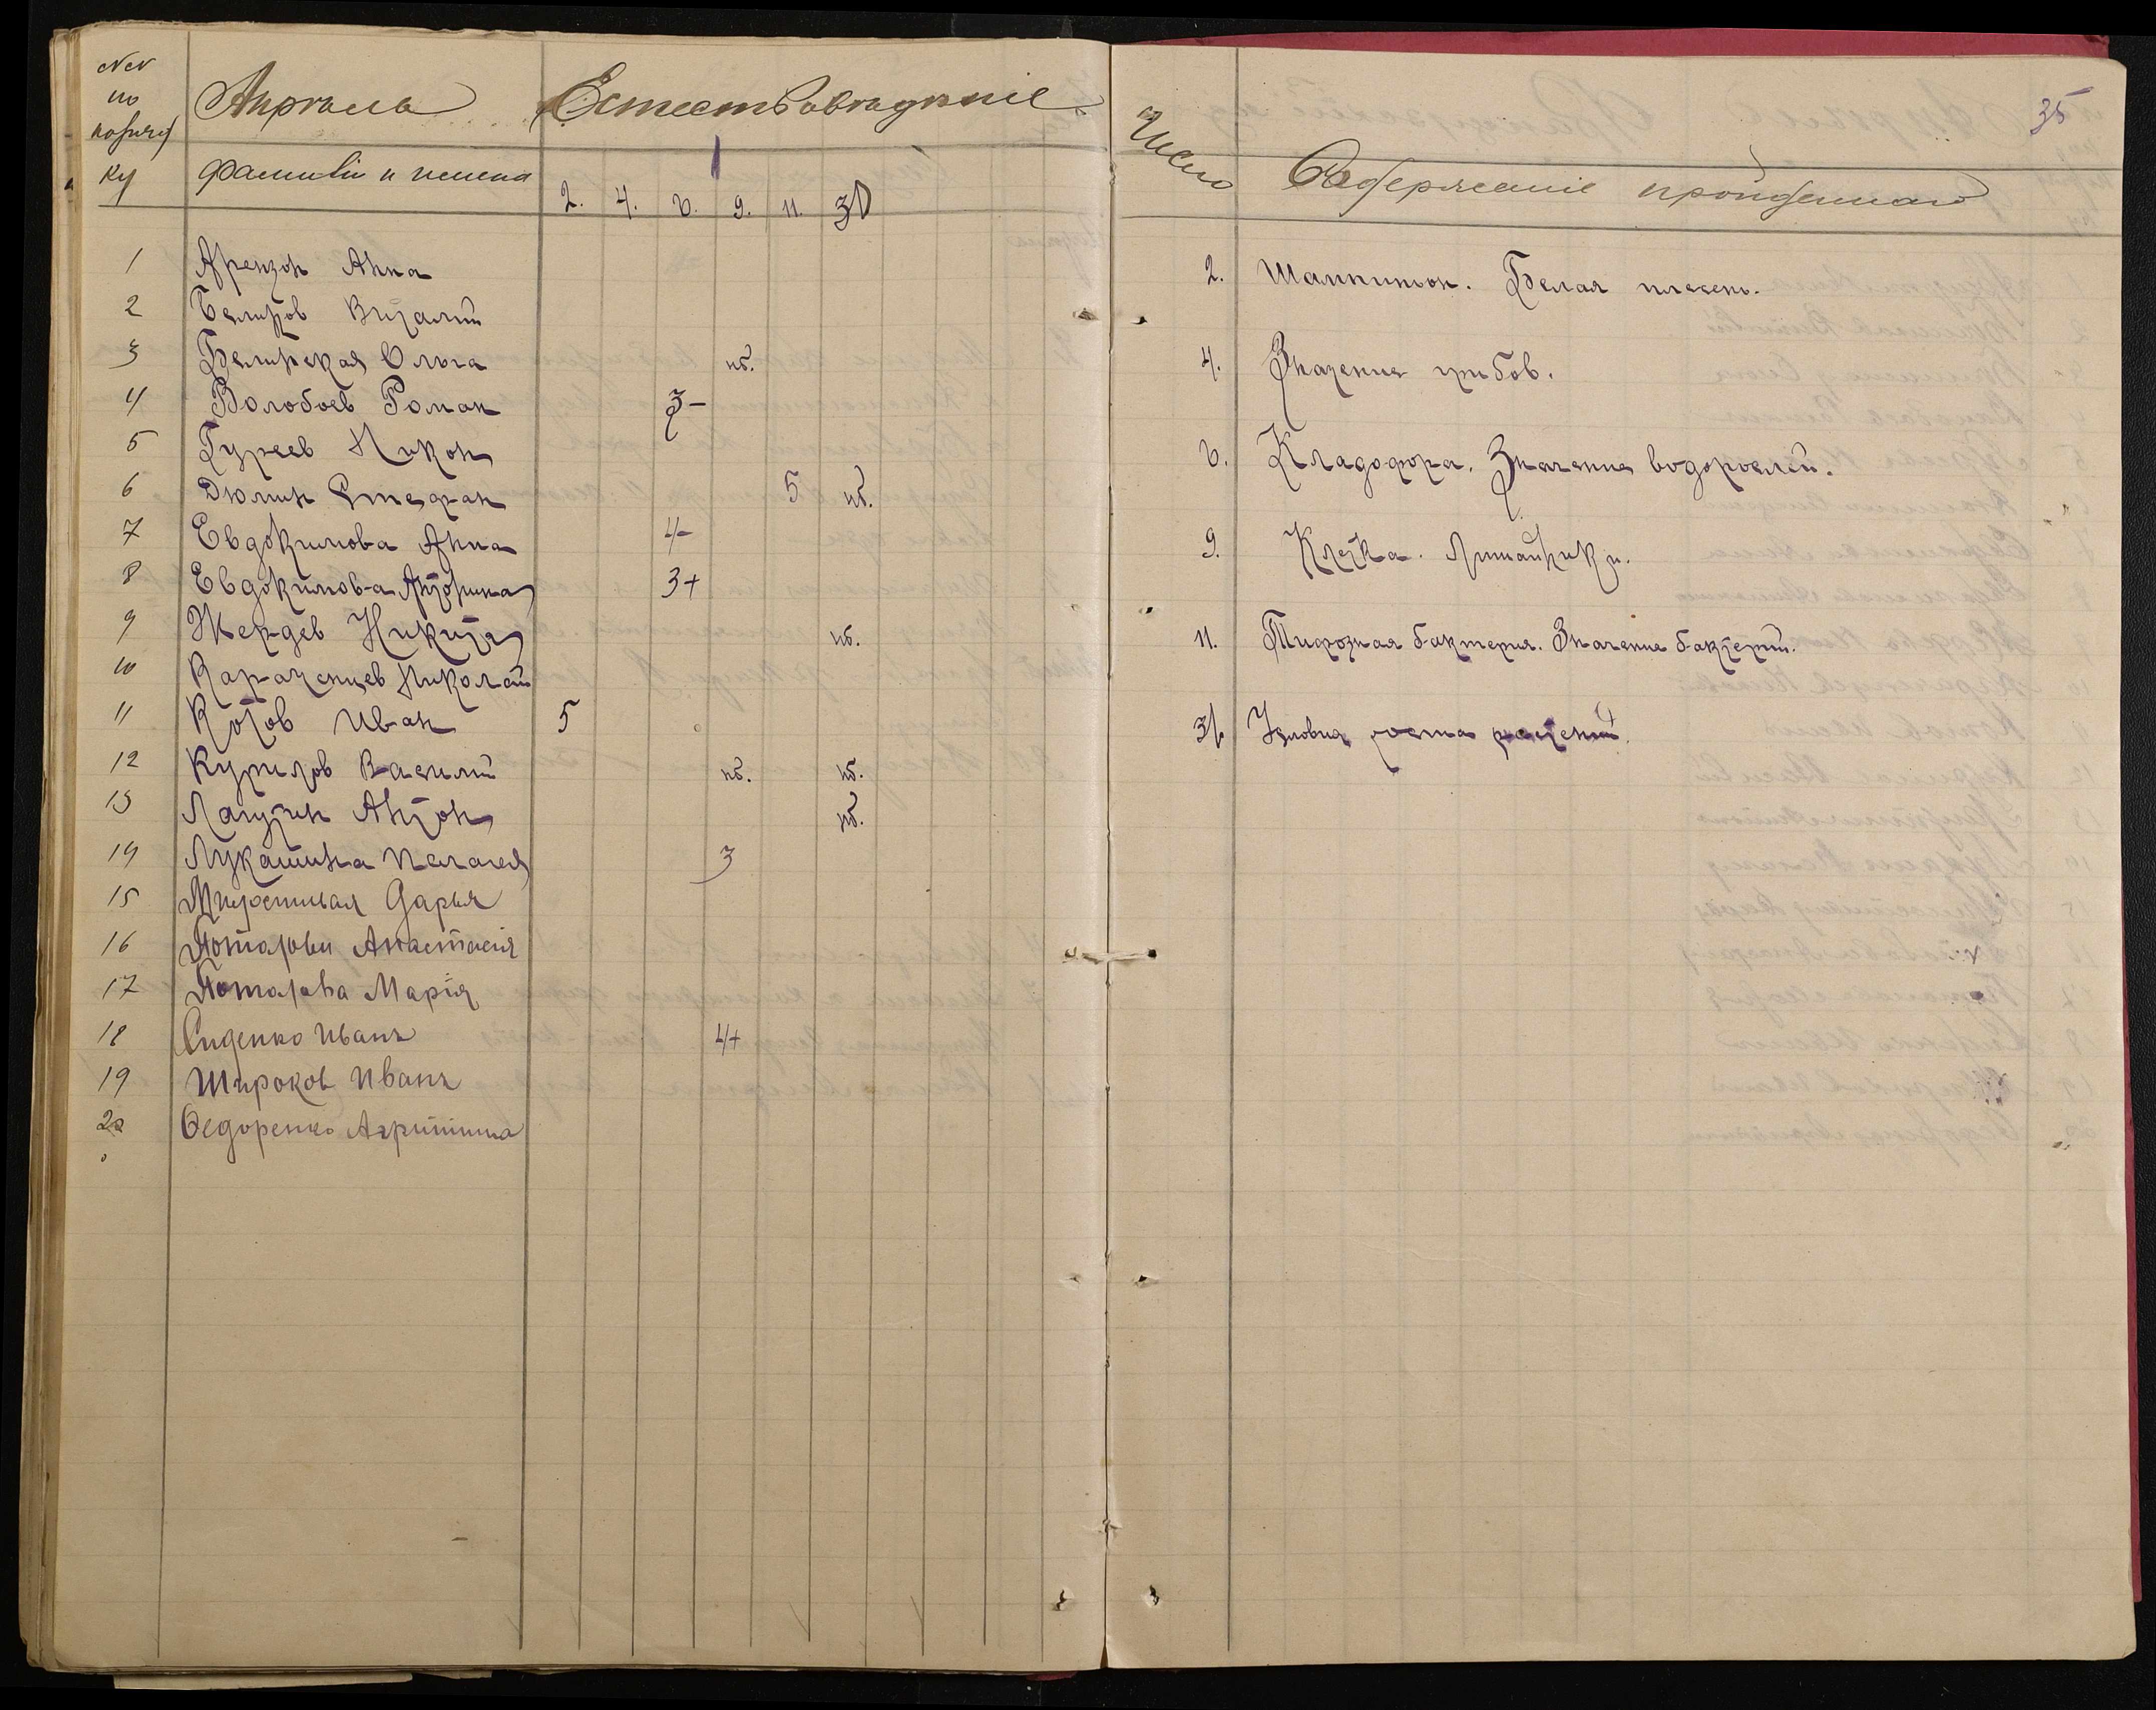 №№ по порядку
Апрель Естествоведение
Фамилии и имена
2. 4. 6. 9. 11. 30
1 Арензон Анна
2 Беликов Виталий
3 Белинская Ольга нб.
4 Волобоев Роман 3-
5 Гуреев Никон
6 Дюмин Стефан 5 нб.
7 Евдокимова Анна 4-
8 Евдокимова Антонина 3+
9 Жердев Никита нб.
10 Караченцев Николай
11 Котов Иван 5
12 Курилов Василий нб. нб.
13 Лагутин Антон нб.
14 Лукашина Пелагея 3
15 Дарья
16 Анастасія
17 Марія
18 Сиденко Иванъ 4+
19 Широков Иванъ
20 Ѳедоренко
35
Число Содержаніе пройденнаго
2. Шампиньон. Белая плесень.
4. Значение грибов.
6. Кладофора. Значение водорослей.
9. Клетка. Лишайники.
11. Тифозная бактерия. Значение бактерий.
Условия роста растений.